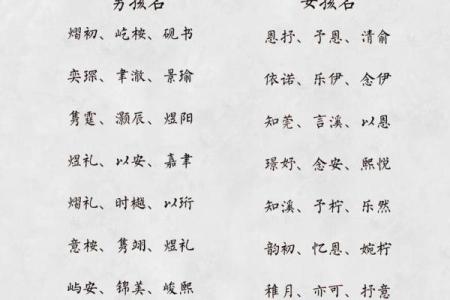 男孩名
熠初、屹桉、砚书
奕琛、聿澈、景瑜
隽霆、灏辰、煜阳
煜礼、以安、嘉聿
熠礼、时樾、以珩
意桉、隽翊、煜礼
屿安、锦美、峻熙
女孩名
恩抒、予恩、清俞
依诺、乐伊、念伊
知莞、言溪、以恩
璟妤、念安、熙悦
知溪、予柠、乐然
韵初、忆恩、婉柠
稚月、亦可、抒意